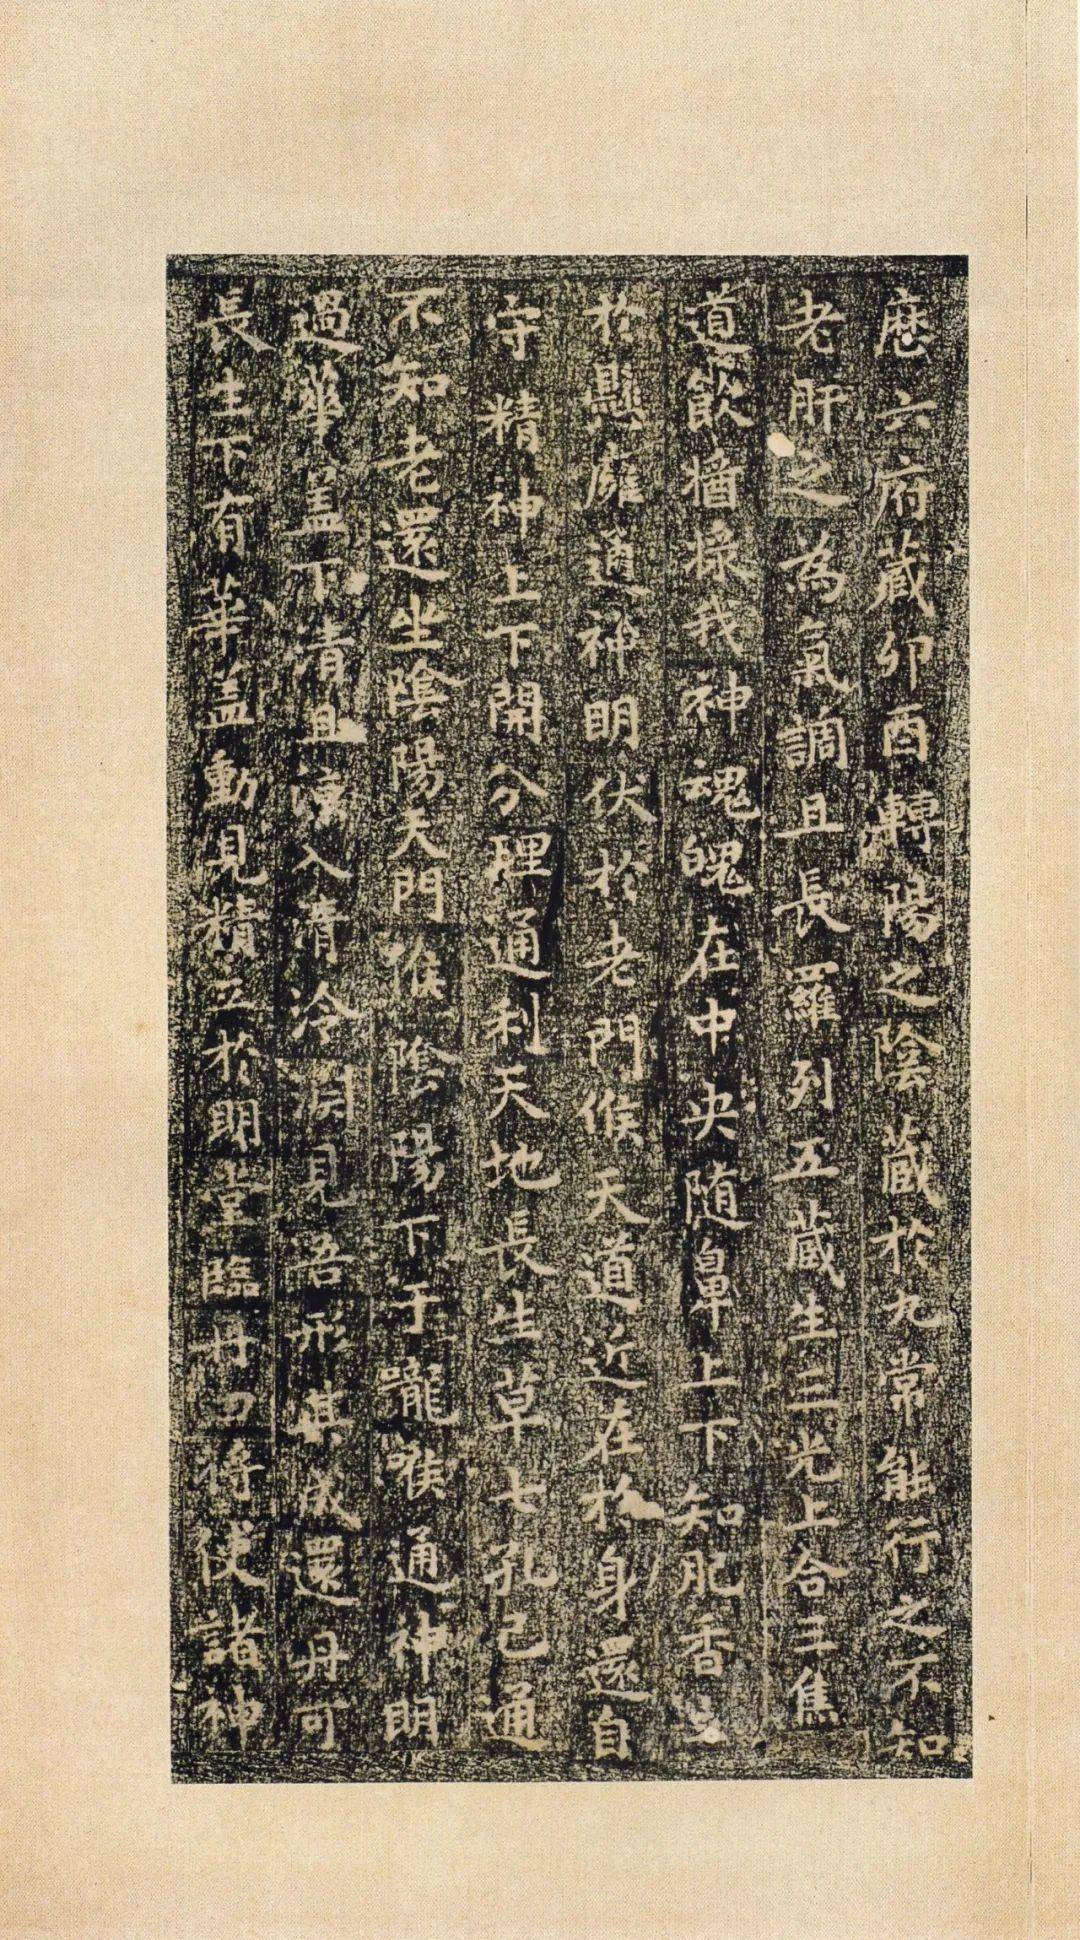 歷六府藏卯酉轉陽之陰藏於九常能行之不知
老肝之為氣調且長羅列五藏生三光上合三焦
道飲醬採我神魂魄在中央隨鼻上下知肥香立
於懸膺通神明伏於老門候天道近在於身還自
守精神上下開分理通利天地長生草七孔已通
不知老還坐陰陽天門候陰陽下于嚨喉通神明
過華蓋下清且涼入清泠淵見吾形其成還丹可
長生下有華蓋動見精立於明堂臨丹田將使諸神